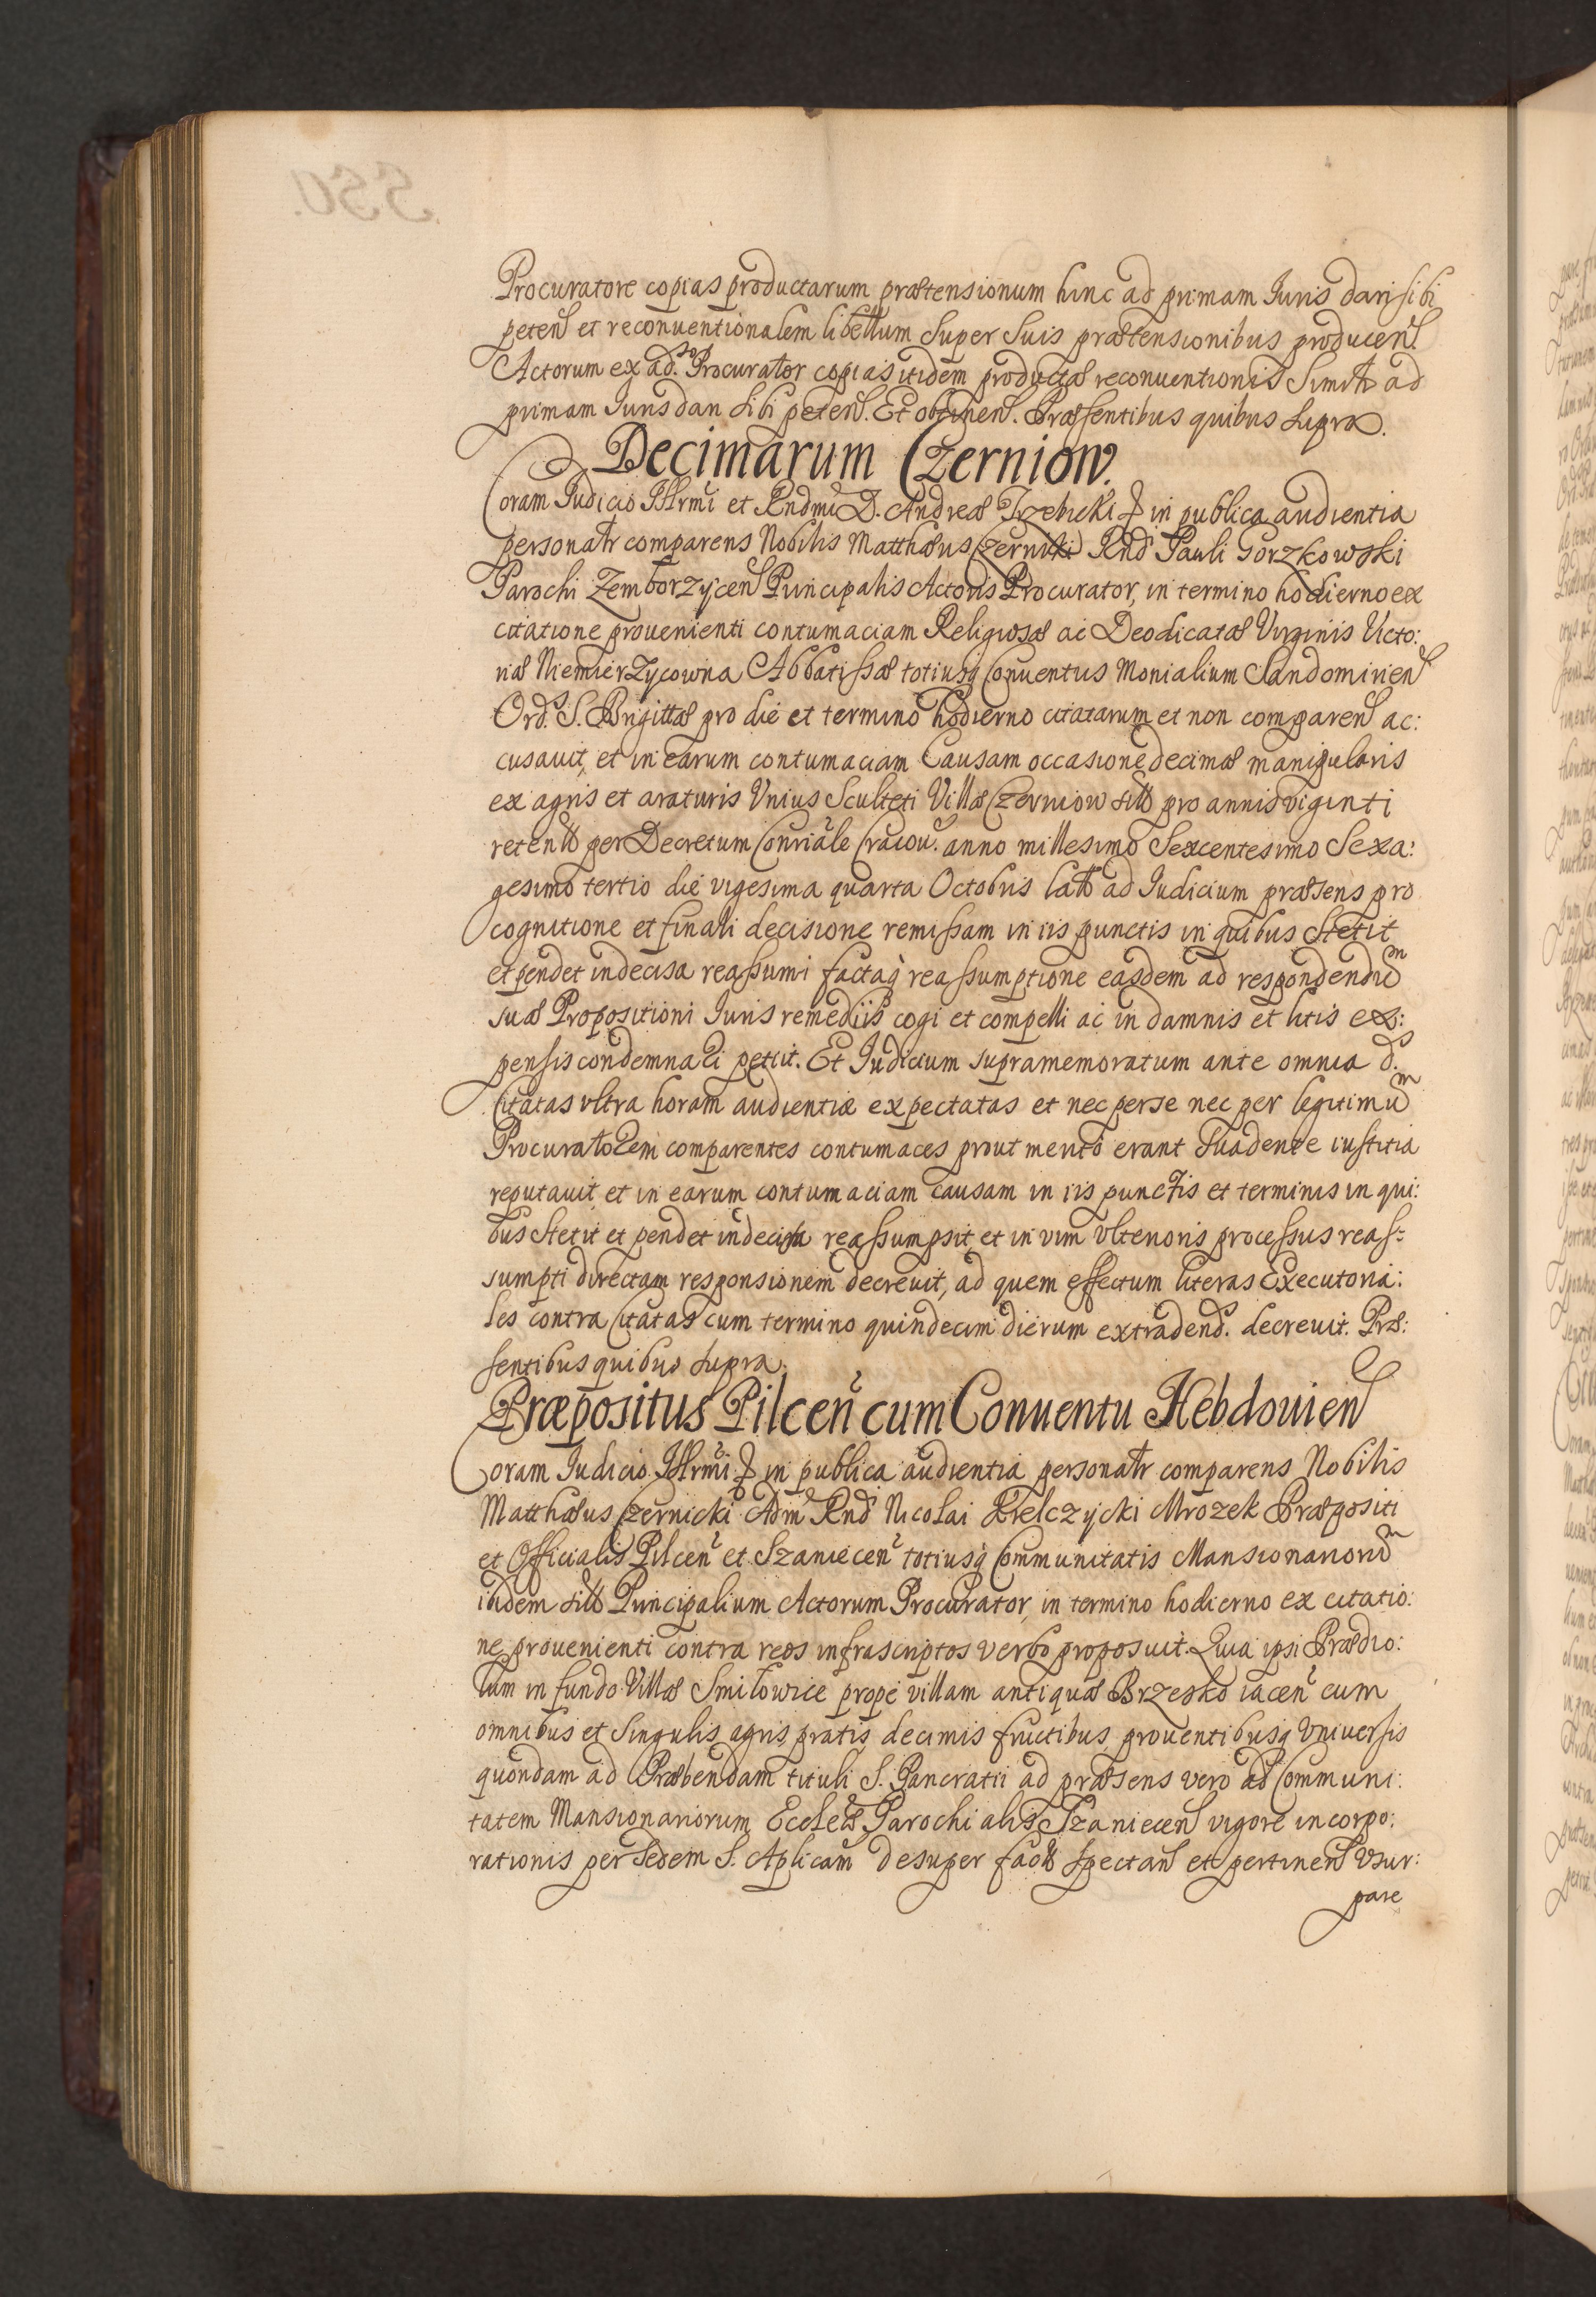 Procuratore copias productarum prætensionum hinc ad primam Iuris dari sibi
peten et reconuentionalem libellum super suis prætensionibus producen.
Actorum ex ad. Procurator copias itidem productæ reconuentionis simitr ad
primam Iuris dari sibi peten. Et obtinen. Præsentibus quibus supra.
Decimarum Czerniow.
Coram Iudicio Illrmi et Rndmi D. Andreæ Trzebicki in publica audientia
personatr comparens Nobilis Matthæus Czernicki Rndi Pauli Gorzkowski
Parochi Zemborzycen Principalis Actoris Procurator, in termino hodierno ex
citatione prouenienti contumaciam Religiosæ ac Deodicatæ Virginis Victo:
riæ Niemierzycowna Abbatissæ totiusq Conuentus Monialium Sandomirien
Ord. S. Brigittæ pro die et termino hodierno citatarum et non comparen ac:
cusauit, et in earum contumaciam Causam occasione decimæ manipularis
ex agris et araturis Vnius Sculteti Villæ Czerniow pro annis viginti
reten per Decretum Conriale Cracou. anno millesimo Sexcentesimo Sexa:
gesimo tertio die vigesima quarta Octobris lat ad Iudicium præsens pro
cognitione et finali decisione remissam in iis punctis in quibus stetit
et pendet indecisa reassumi factaq reassumptione easdem ad respondendum
suæ Propositioni Iuris remediis cogi et compelli ac in damnis et litis ex:
pensis condemnari petiit. Et Iudicium supramemoratum ante omnia d.
Citatas vltra horam audientiæ expectatas et nec per se nec per legitimum
Procuratorem comparentes contumaces prout merito erant suadente iustitia
reputauit, et in earum contumaciam causam in iis punctis et terminis in qui:
bus stetit et pendet indecisa reassumpsit et in vim vlterioris processus reas:
sumpti directam responsionem decreuit, ad quem effectum literas Executoria:
les contra Citatas cum termino quindecim dierum extradend. decreuit. Præ:
sentibus quibus supra.
Præpositus Pilcen cum Conuentu Hebdouien
Coram Iudicio Illrmi in publica audientia personatr comparens Nobilis
Matthæus Czernicki Adm Rndi Nicolai Kielczycki Mrozek Præpositi
et Officialis Pilcen et Szaniecen totiusq Communitatis Mansionariorum
ibidem Principalium Actorum Procurator, in termino hodierno ex citatio:
ne prouenienti contra reos infrascriptos verbo proposuit. Quia ipsi Prædio:
lum in fundo Villæ Smiłowice prope villam antiquæ Brzesko iacen cum
omnibus et singulis agris, pratis decimis fructibus prouentibusq Vniuersis
quondam ad Præbendam tituli S. Pancratii ad præsens vero ad Communi:
tatem Mansionariorum Ecclæ Parochialis Szaniecen vigore incorpo:
rationis per Sedem S. Aplicam desuper fact spectan et pertinen vsur:
pare